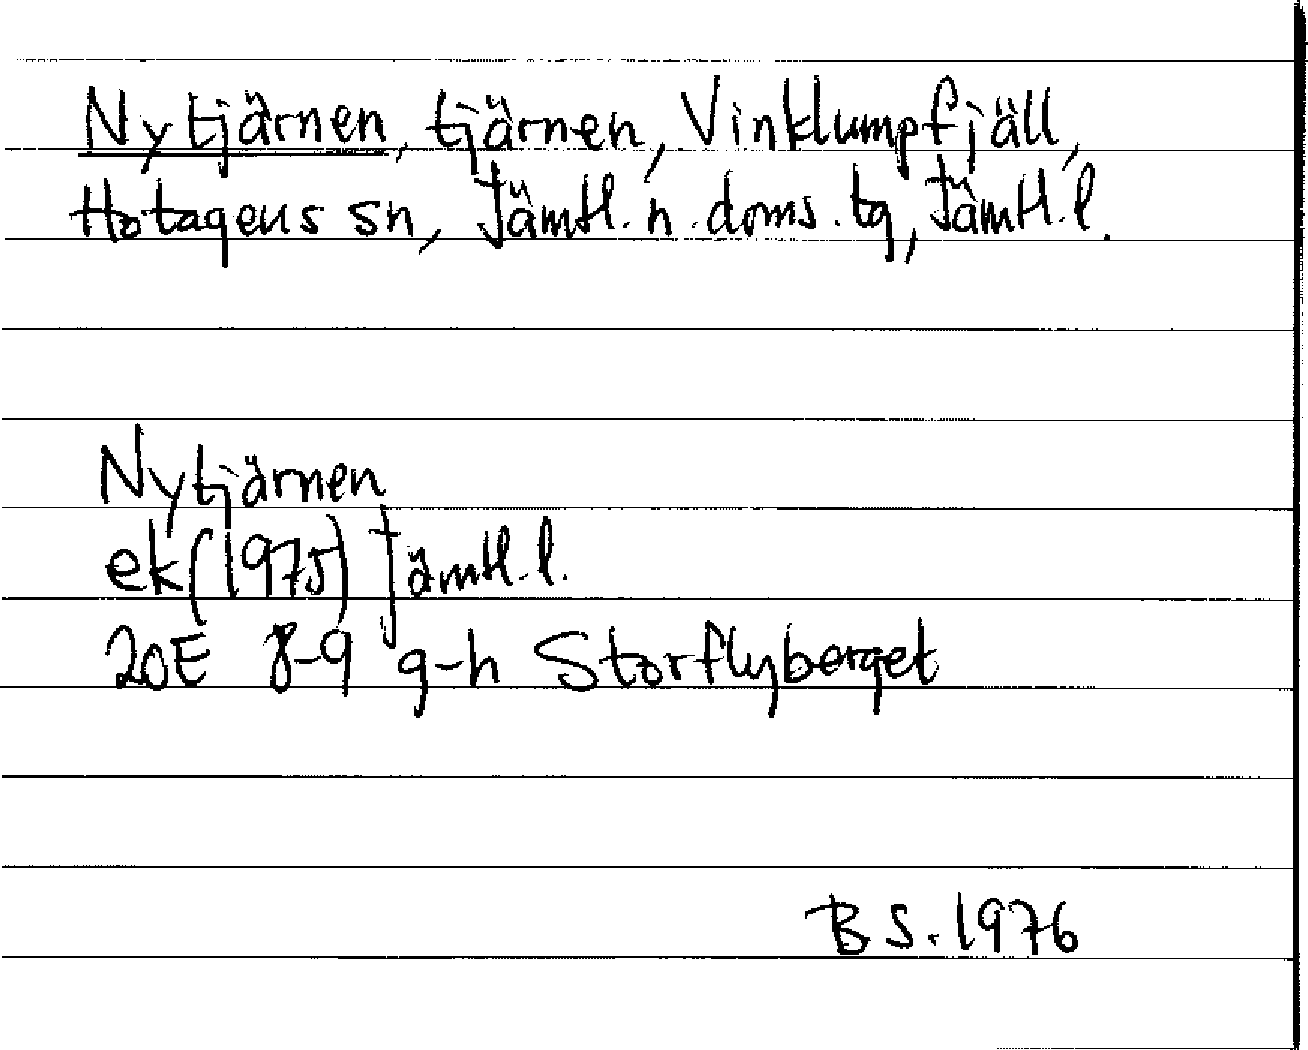 Nytjärnen, tjärnen, Vinklumpfjäll,
Hotagens sn, Jämtl. n. doms. tg, Jämtl. l.
Nytjärnen
ek (1975) Jämtl. l.
20E 8-9 g-h Storflyberget
BS. 1976